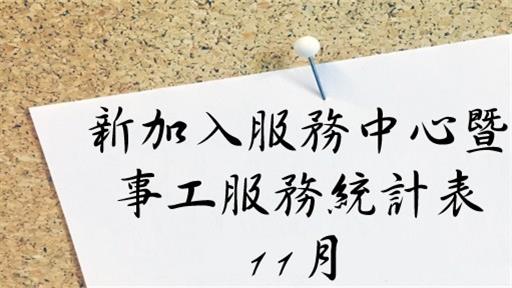 新加入服務中心暨
事工服務統計表
11月